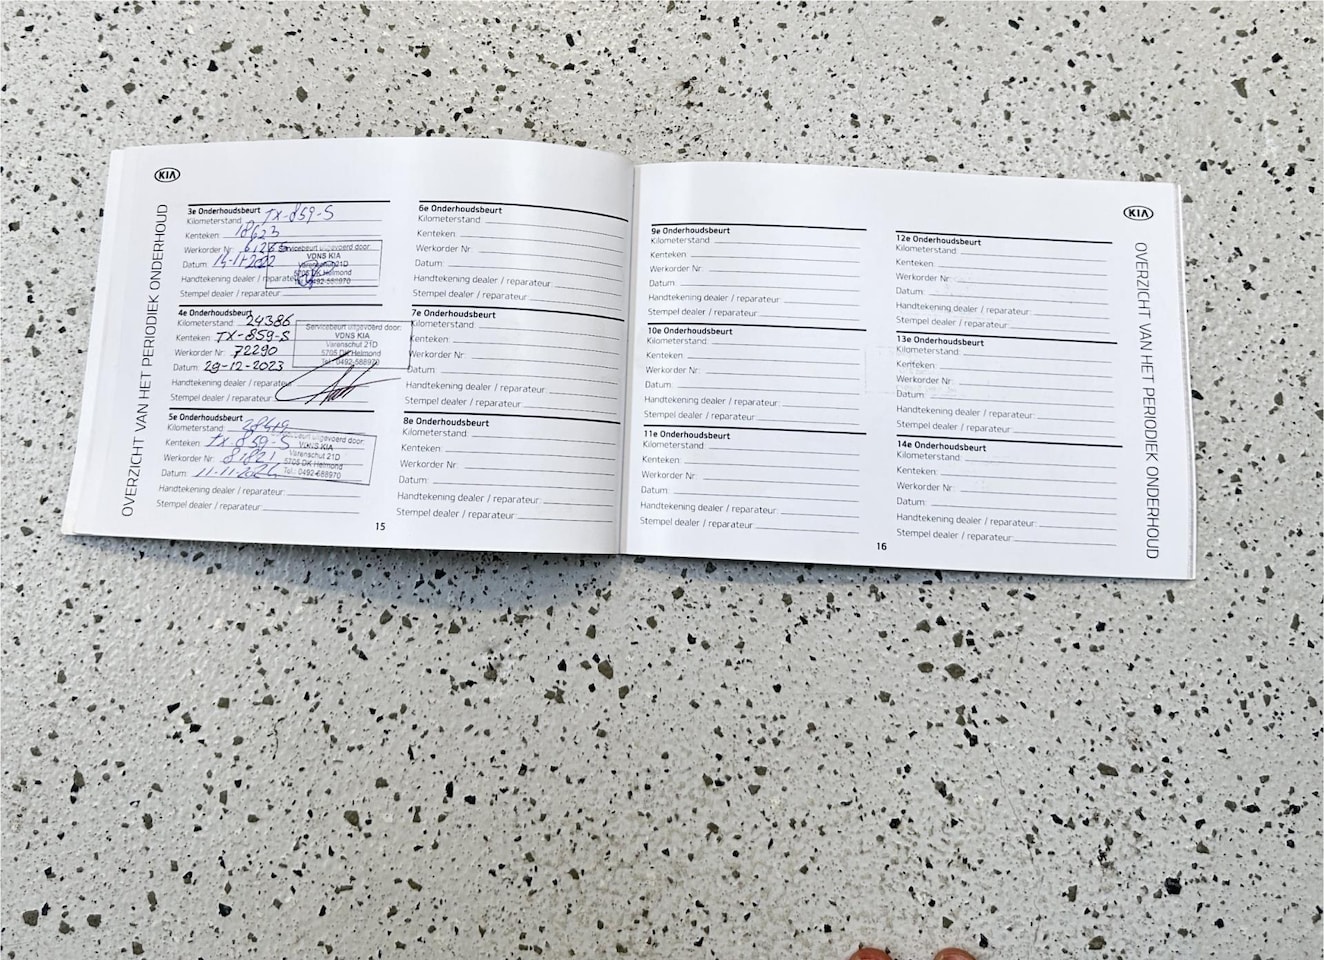 KIA
OVERZICHT VAN HET PERIODIEK ONDERHOUD
3e Onderhoudsbeurt
Kilometerstand: TX-859-S
Kenteken: 18623
Werkorder Nr:
Datum: 14-11-2022
Handtekening dealer / reparateur:
Stempel dealer / reparateur:
Servicebeurt uitgevoerd door:
VDNS KIA
Varenschut 21D
5705 DK Helmond
Tel.: 0492-588970
4e Onderhoudsbeurt
Kilometerstand: 24386
Kenteken: TX-859-S
Werkorder Nr: 72290
Datum: 29-12-2023
Handtekening dealer / reparateur:
Stempel dealer / reparateur:
Servicebeurt uitgevoerd door:
VDNS KIA
Varenschut 21D
5705 DK Helmond
Tel.: 0492-588970
5e Onderhoudsbeurt
Kilometerstand:
Kenteken: TX-859-S
Werkorder Nr: 81821
Datum: 11-11-2024
Handtekening dealer / reparateur:
Stempel dealer / reparateur:
Servicebeurt uitgevoerd door:
VDNS KIA
Varenschut 21D
5705 DK Helmond
Tel.: 0492-588970
6e Onderhoudsbeurt
Kilometerstand:
Kenteken:
Werkorder Nr:
Datum:
Handtekening dealer / reparateur:
Stempel dealer / reparateur:
7e Onderhoudsbeurt
Kilometerstand:
Kenteken:
Werkorder Nr:
Datum:
Handtekening dealer / reparateur:
Stempel dealer / reparateur:
8e Onderhoudsbeurt
Kilometerstand:
Kenteken:
Werkorder Nr:
Datum:
Handtekening dealer / reparateur:
Stempel dealer / reparateur:
15
9e Onderhoudsbeurt
Kilometerstand:
Kenteken:
Werkorder Nr:
Datum:
Handtekening dealer / reparateur:
Stempel dealer / reparateur:
10e Onderhoudsbeurt
Kilometerstand:
Kenteken:
Werkorder Nr:
Datum:
Handtekening dealer / reparateur:
Stempel dealer / reparateur:
11e Onderhoudsbeurt
Kilometerstand:
Kenteken:
Werkorder Nr:
Datum:
Handtekening dealer / reparateur:
Stempel dealer / reparateur:
12e Onderhoudsbeurt
Kilometerstand:
Kenteken:
Werkorder Nr:
Datum:
Handtekening dealer / reparateur:
Stempel dealer / reparateur:
13e Onderhoudsbeurt
Kilometerstand:
Kenteken:
Werkorder Nr:
Datum:
Handtekening dealer / reparateur:
Stempel dealer / reparateur:
14e Onderhoudsbeurt
Kilometerstand:
Kenteken:
Werkorder Nr:
Datum:
Handtekening dealer / reparateur:
Stempel dealer / reparateur:
16
KIA
OVERZICHT VAN HET PERIODIEK ONDERHOUD